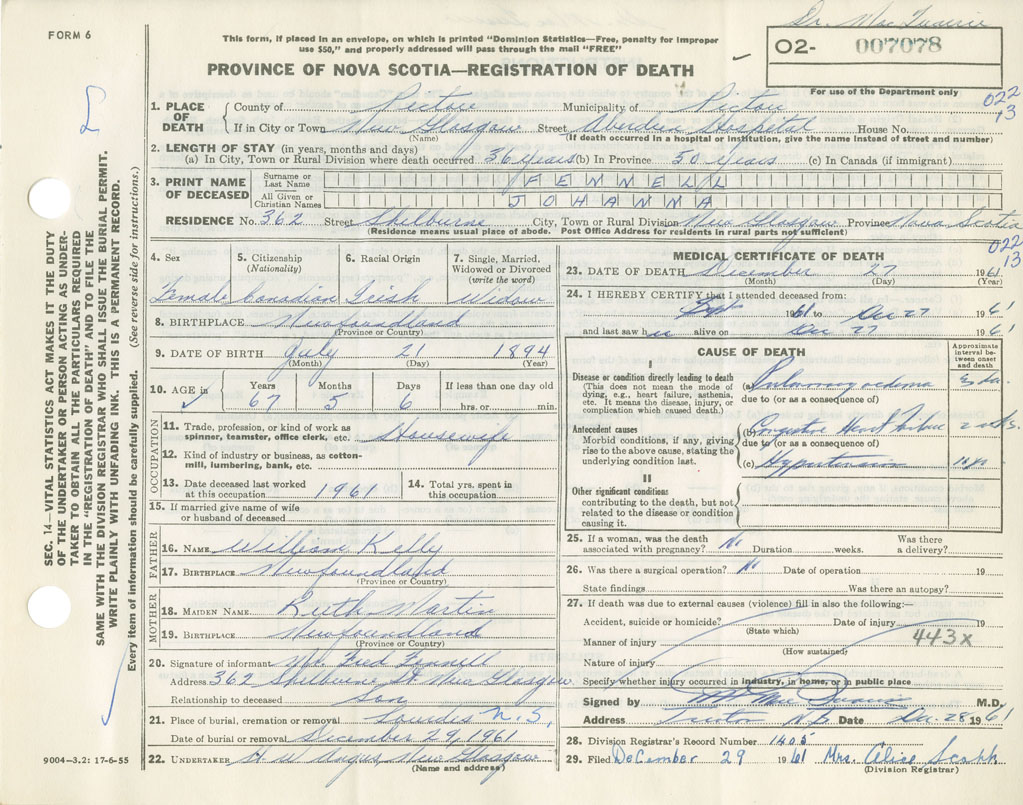 Dr. Mac Quarrie
FORM 6
This form, if placed in an envelope, on which is printed "Dominion Statistics—Free, penalty for improper
use $50," and properly addressed will pass through the mail "FREE"
02- 007078
PROVINCE OF NOVA SCOTIA—REGISTRATION OF DEATH
For use of the Department only
022
13
1. PLACE OF DEATH
County of Pictou Municipality of Pictou
If in City or Town New Glasgow Street Aberdeen Hospital House No.
(Name) (If death occurred in a hospital or institution, give the name instead of street and number)
2. LENGTH OF STAY (in years, months and days)
(a) In City, Town or Rural Division where death occurred 36 years (b) In Province 50 years (c) In Canada (if immigrant)
3. PRINT NAME OF DECEASED
Surname or Last Name FENNELL
All Given or Christian Names JOHANNA
RESIDENCE No. 362 Street Shelburne City, Town or Rural Division New Glasgow Province Nova Scotia
(Residence means usual place of abode. Post Office Address for residents in rural parts not sufficient)
4. Sex
Female
5. Citizenship (Nationality)
Canadian
6. Racial Origin
Irish
7. Single, Married, Widowed or Divorced (write the word)
Widow
8. BIRTHPLACE Newfoundland
(Province or Country)
9. DATE OF BIRTH July 21 1894
(Month) (Day) (Year)
10. AGE in Years Months Days If less than one day old
67 5 6 hrs. or min.
OCCUPATION
11. Trade, profession, or kind of work as
spinner, teamster, office clerk, etc. Housewife
12. Kind of industry or business, as cotton-
mill, lumbering, bank, etc.
13. Date deceased last worked
at this occupation 1961
14. Total yrs. spent in
this occupation
15. If married give name of wife
or husband of deceased
FATHER
16. NAME William Kelly
17. BIRTHPLACE Newfoundland
(Province or Country)
MOTHER
18. MAIDEN NAME Ruth Martin
19. BIRTHPLACE Newfoundland
(Province or Country)
20. Signature of informant Mr. Fred Fennell
Address 362 Shelburne St New Glasgow
Relationship to deceased Son
21. Place of burial, cremation or removal Lourdes N.S.
Date of burial or removal December 29, 1961
22. UNDERTAKER H W Angus New Glasgow
(Name and address)
022
13
MEDICAL CERTIFICATE OF DEATH
23. DATE OF DEATH December 27 1961
(Month) (Day) (Year)
24. I HEREBY CERTIFY that I attended deceased from:
Sept 1961 to Dec 27 1961
and last saw her alive on Dec 27 1961
CAUSE OF DEATH
Approximate interval between onset and death
I
Disease or condition directly leading to death
(This does not mean the mode of
dying, e.g., heart failure, asthenia,
etc. It means the disease, injury, or
complication which caused death.)
(a) Pulmonary oedema
due to (or as a consequence of)
Antecedent causes
Morbid conditions, if any, giving
rise to the above cause, stating the
underlying condition last.
(b) Congestive Heart Failure 2 wks.
due to (or as a consequence of)
(c) Hypertension
II
Other significant conditions
contributing to the death, but not
related to the disease or condition
causing it.
25. If a woman, was the death
associated with pregnancy? No Duration weeks. Was there
a delivery?
26. Was there a surgical operation? No Date of operation 19
State findings Was there an autopsy?
27. If death was due to external causes (violence) fill in also the following:—
Accident, suicide or homicide? Date of injury 19
(State which)
Manner of injury 443X
(How sustained)
Nature of injury
Specify whether injury occurred in industry, in home, or in public place
Signed by Mac Quarrie M.D.
Address Trenton N.S. Date Dec. 28 1961
28. Division Registrar's Record Number 1405
29. Filed December 29 1961 Mrs. Alice
(Division Registrar)
SEC. 14—VITAL STATISTICS ACT MAKES IT THE DUTY
OF THE UNDERTAKER OR PERSON ACTING AS UNDER-
TAKER TO OBTAIN ALL THE PARTICULARS REQUIRED
IN THE "REGISTRATION OF DEATH" AND TO FILE THE
SAME WITH THE DIVISION REGISTRAR WHO SHALL ISSUE THE BURIAL PERMIT.
WRITE PLAINLY WITH UNFADING INK. THIS IS A PERMANENT RECORD.
Every item of information should be carefully supplied. (See reverse side for instructions.)
9004—3.2: 17-6-55